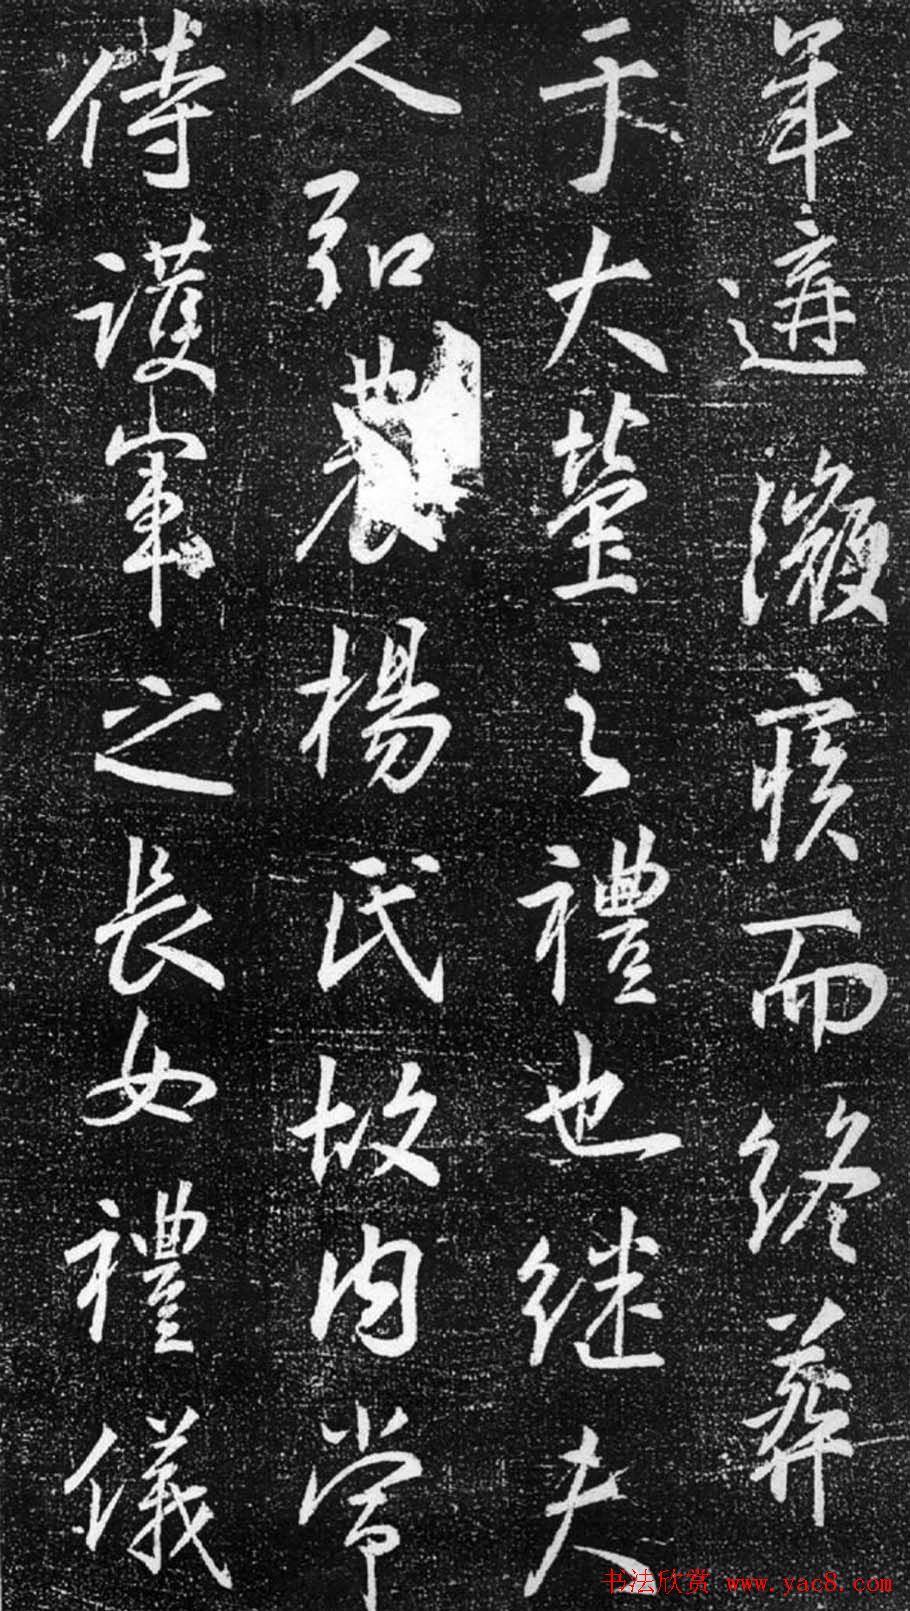 年遘疾而終葬
于大塋之禮也継夫
人弘農楊氏故内常
侍護軍之長女禮儀
书法欣赏 www.yac8.com